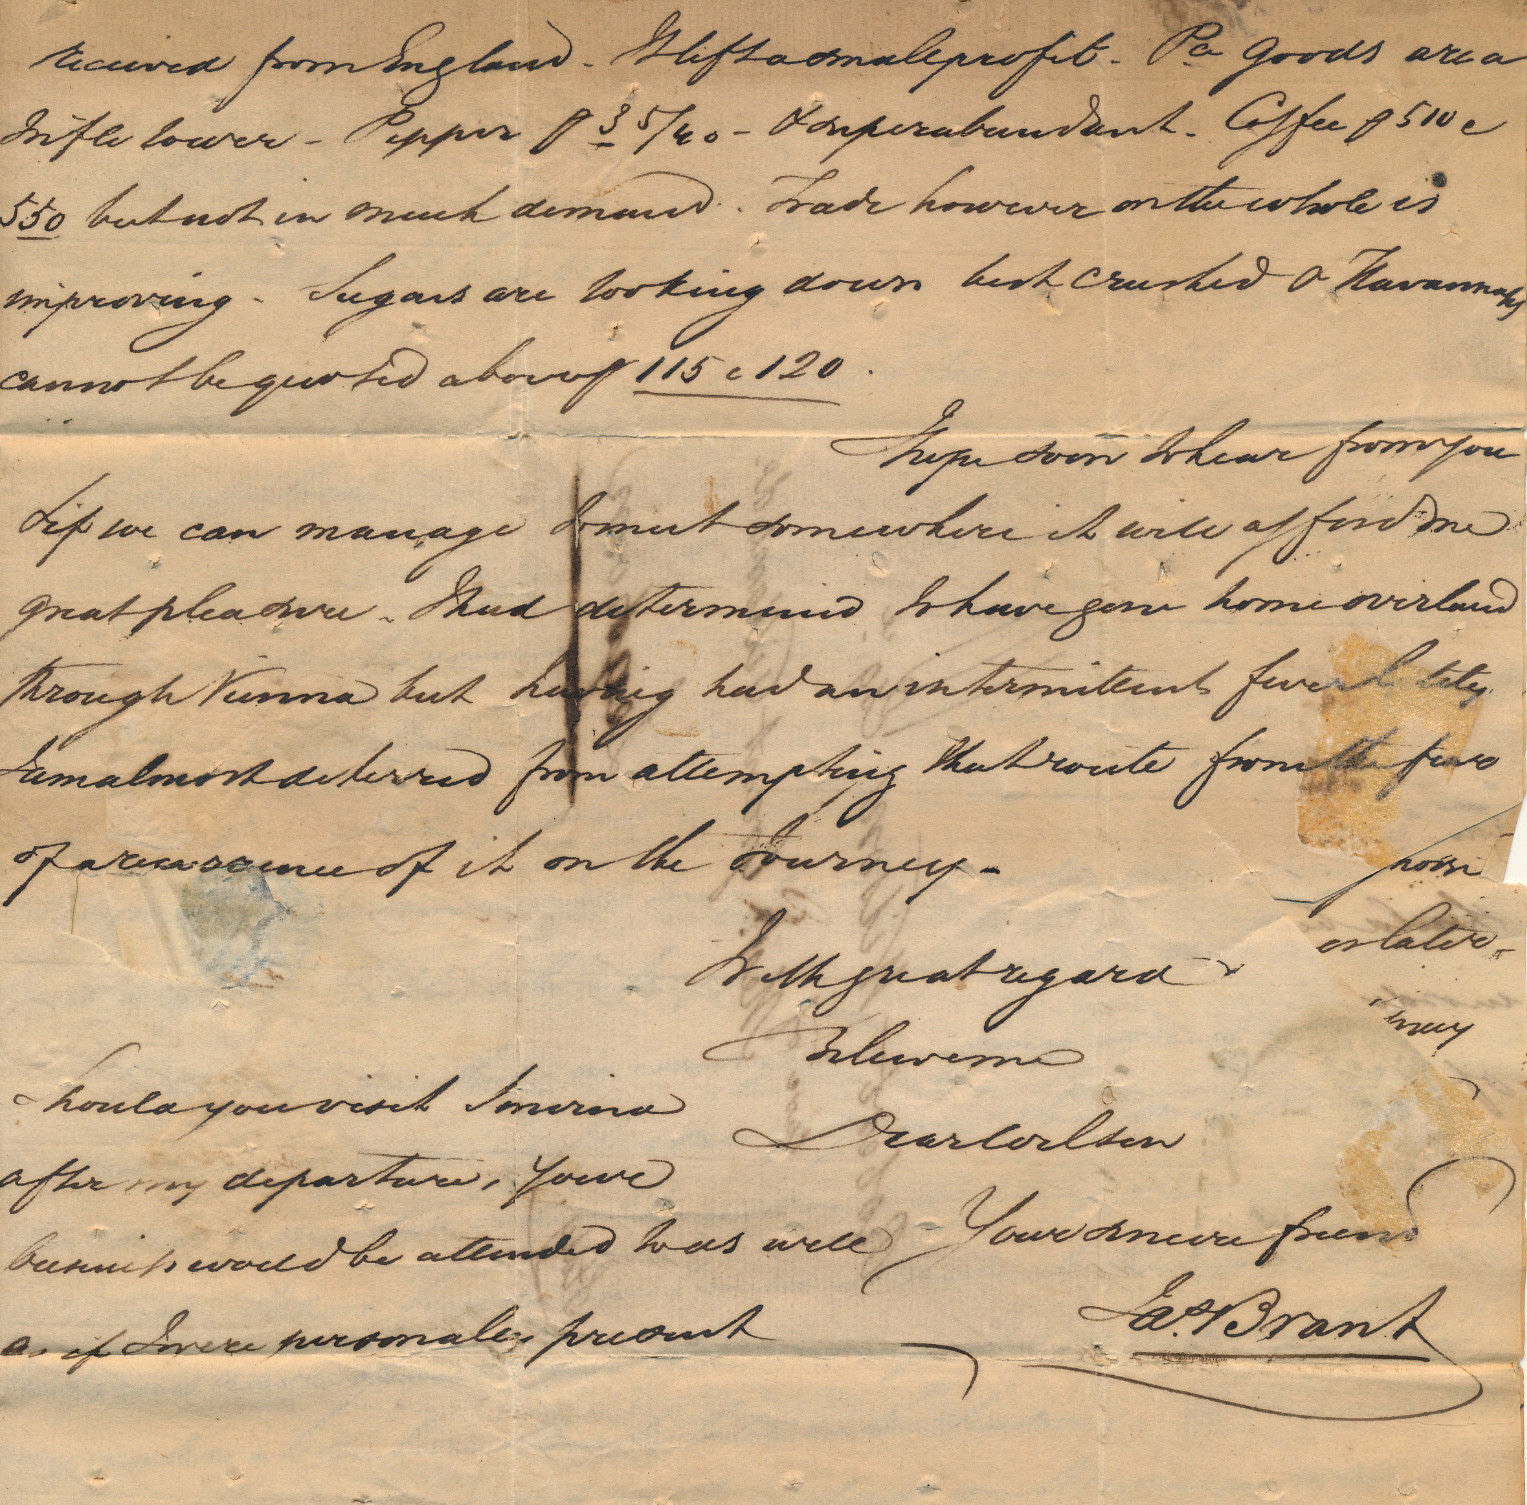 received from England - It left a small profit - Pce Goods are a
trifle lower - Pepper p 3 5/40 - & superabundant - Coffee p 510 c
550 but not in much demand. Trade however on the whole is
improving - Sugars are looking down best crushed & Havannahs
cannot be quoted above p 115 c 120.
I hope soon to hear from you
& if we can manage to meet somewhere it will afford me
great pleasure - I had determined to have gone home overland
through Vienna but having had an intermittent fever lately
I am almost deterred from attempting that route from the fear
of a reascence of it on the Journey -
With great regard
Believe me
Dear Wilson
Your sincere friend
Jas. Brant
Should you visit Smirna
after my departure, your
business would be attended to as well
as if I were personally present